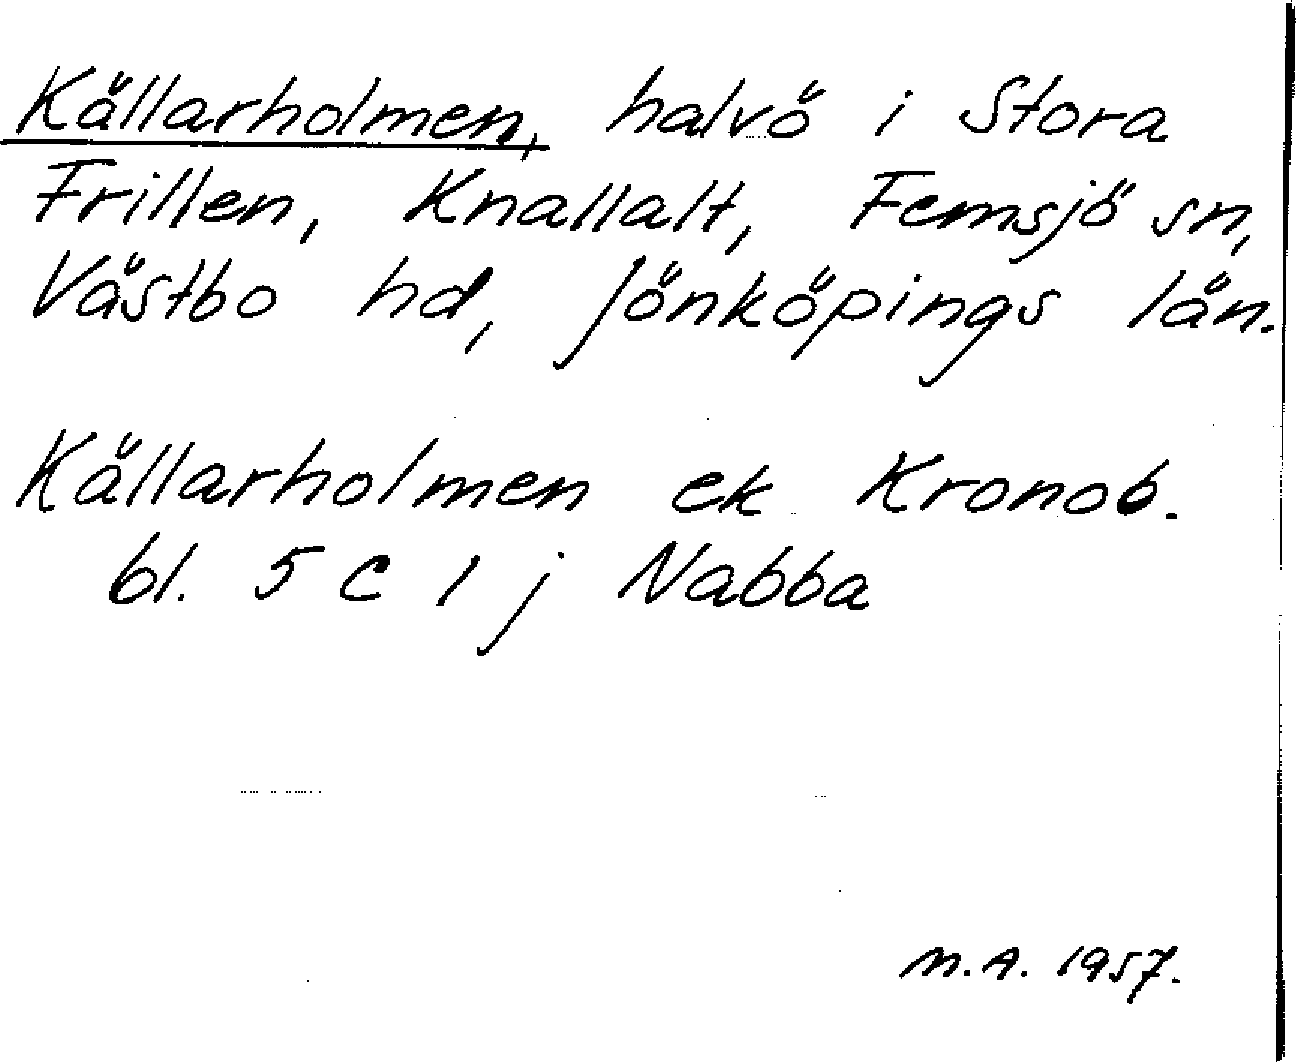 Källarholmen, halvö i Stora
Frillen, Knallalt, Femsjö sn,
Västbo hd, Jönköpings län.
Källarholmen ek Kronob.
bl. 5 C 1 j Nabba
M.A. 1957.